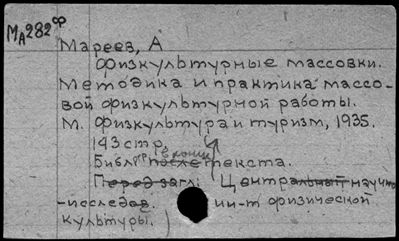 МА282ф
Мареев, А
физкультурные массовки.
Методика и практика массо-
вой физкультурной работы.
М. Физкультура и туризм, 1935.
143 стр,
в конце
Библ. после текста.
Перед загл: Центральный научно
-исследов. ин-т физической
культуры.)